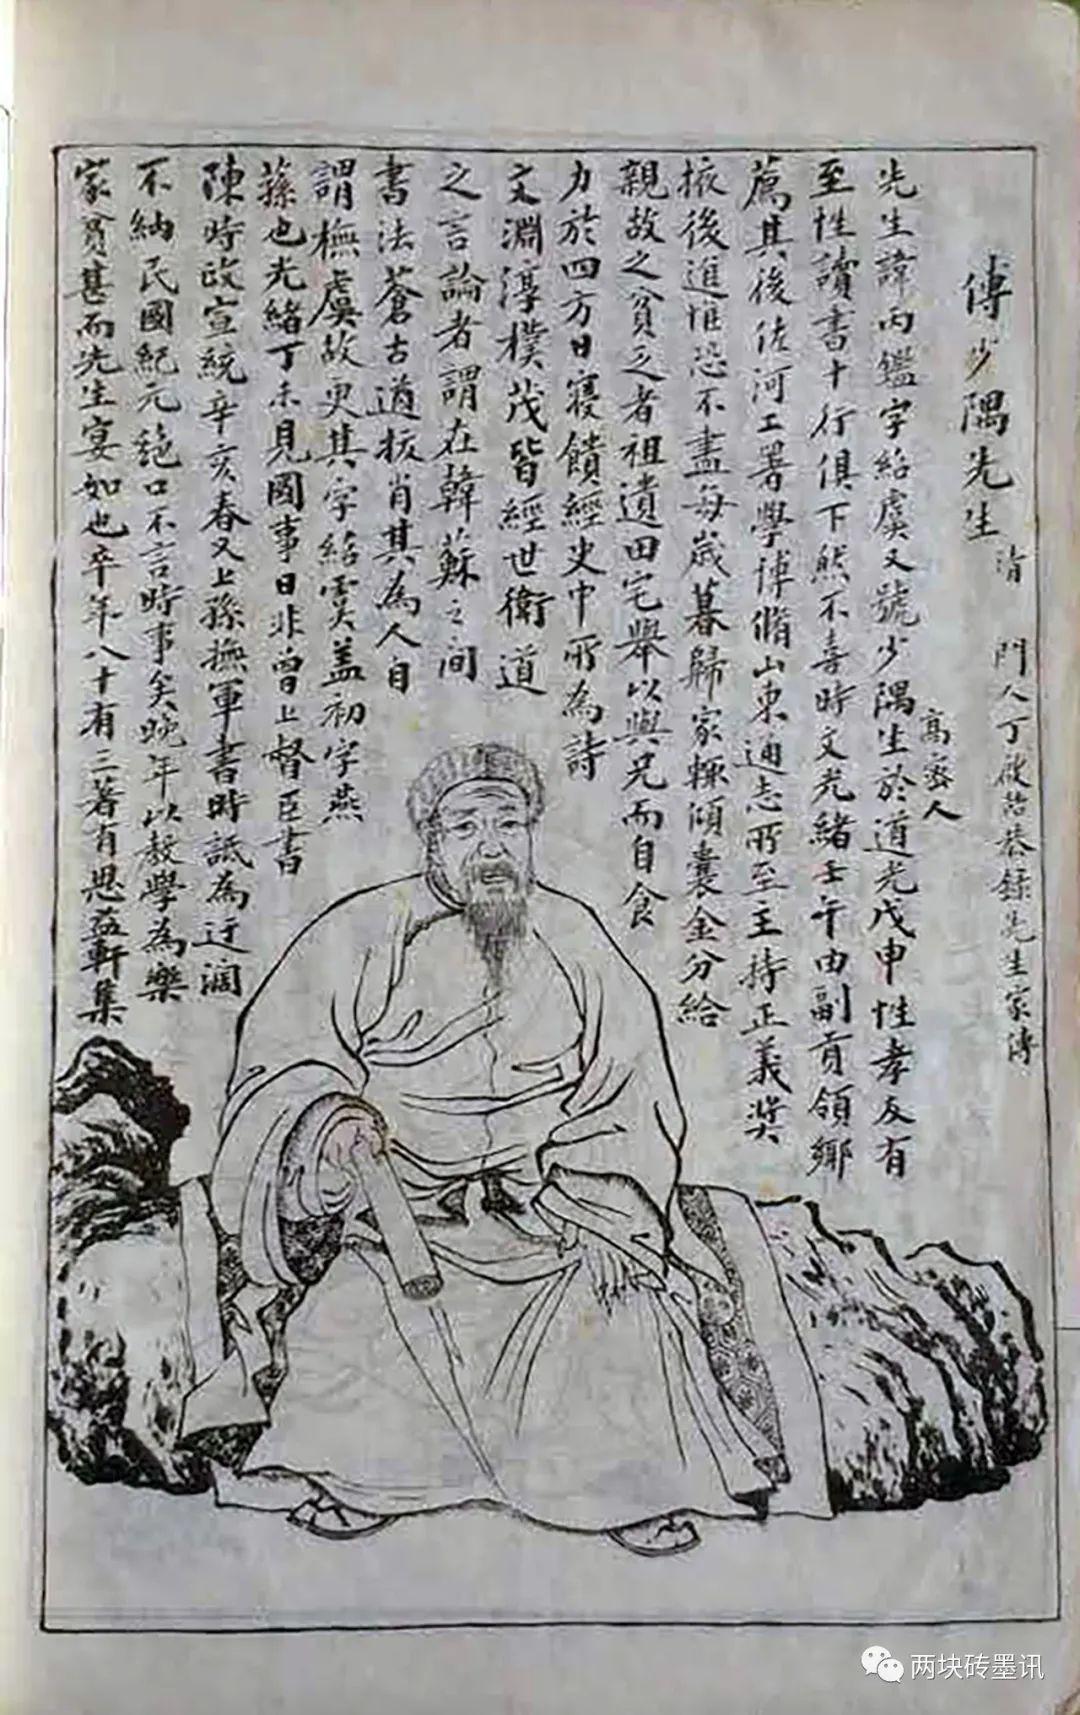 傅少隅先生
清 高密人
門人丁啟喆恭錄先生家傳
先生諱丙鑑字紿虞又號少隅生於道光戊申性孝友有
至性讀書十行俱下然不喜時文光緒壬午由副貢領鄉
薦其後佐河工署學博脩山東通志所至主持正義奬
掖後進惟恐不盡每歲暮歸家輒傾囊金分給
親故之貧乏者祖遺田宅舉以與兄而自食
力於四方日寢饋經史中所為詩
文淵渟樸茂皆經世衛道
之言論者謂在韓蘇之間
書法蒼古遒拔肖其為人自
謂橅虞故更其字紿虞蓋初字燕
蓀也光緒丁未見國事日非曾上督臣書
陳時政宣統辛亥春又上孫撫軍書時詆為迂濶
不納民國紀元絶口不言時事矣晚年以教學為樂
家貧甚而先生宴如也卒年八十有三著有思益軒集
两块砖墨讯